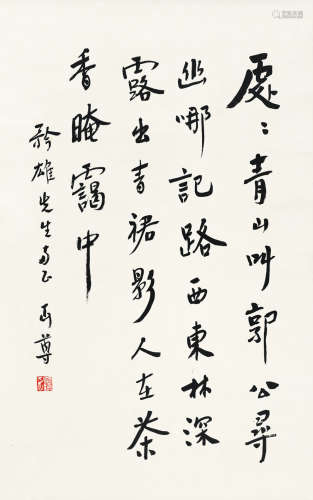 處〻青山叫郭公尋
幽哪記路西東林深
露出青裙影人在茶
香晻靄中
雄先生 正 丏尊